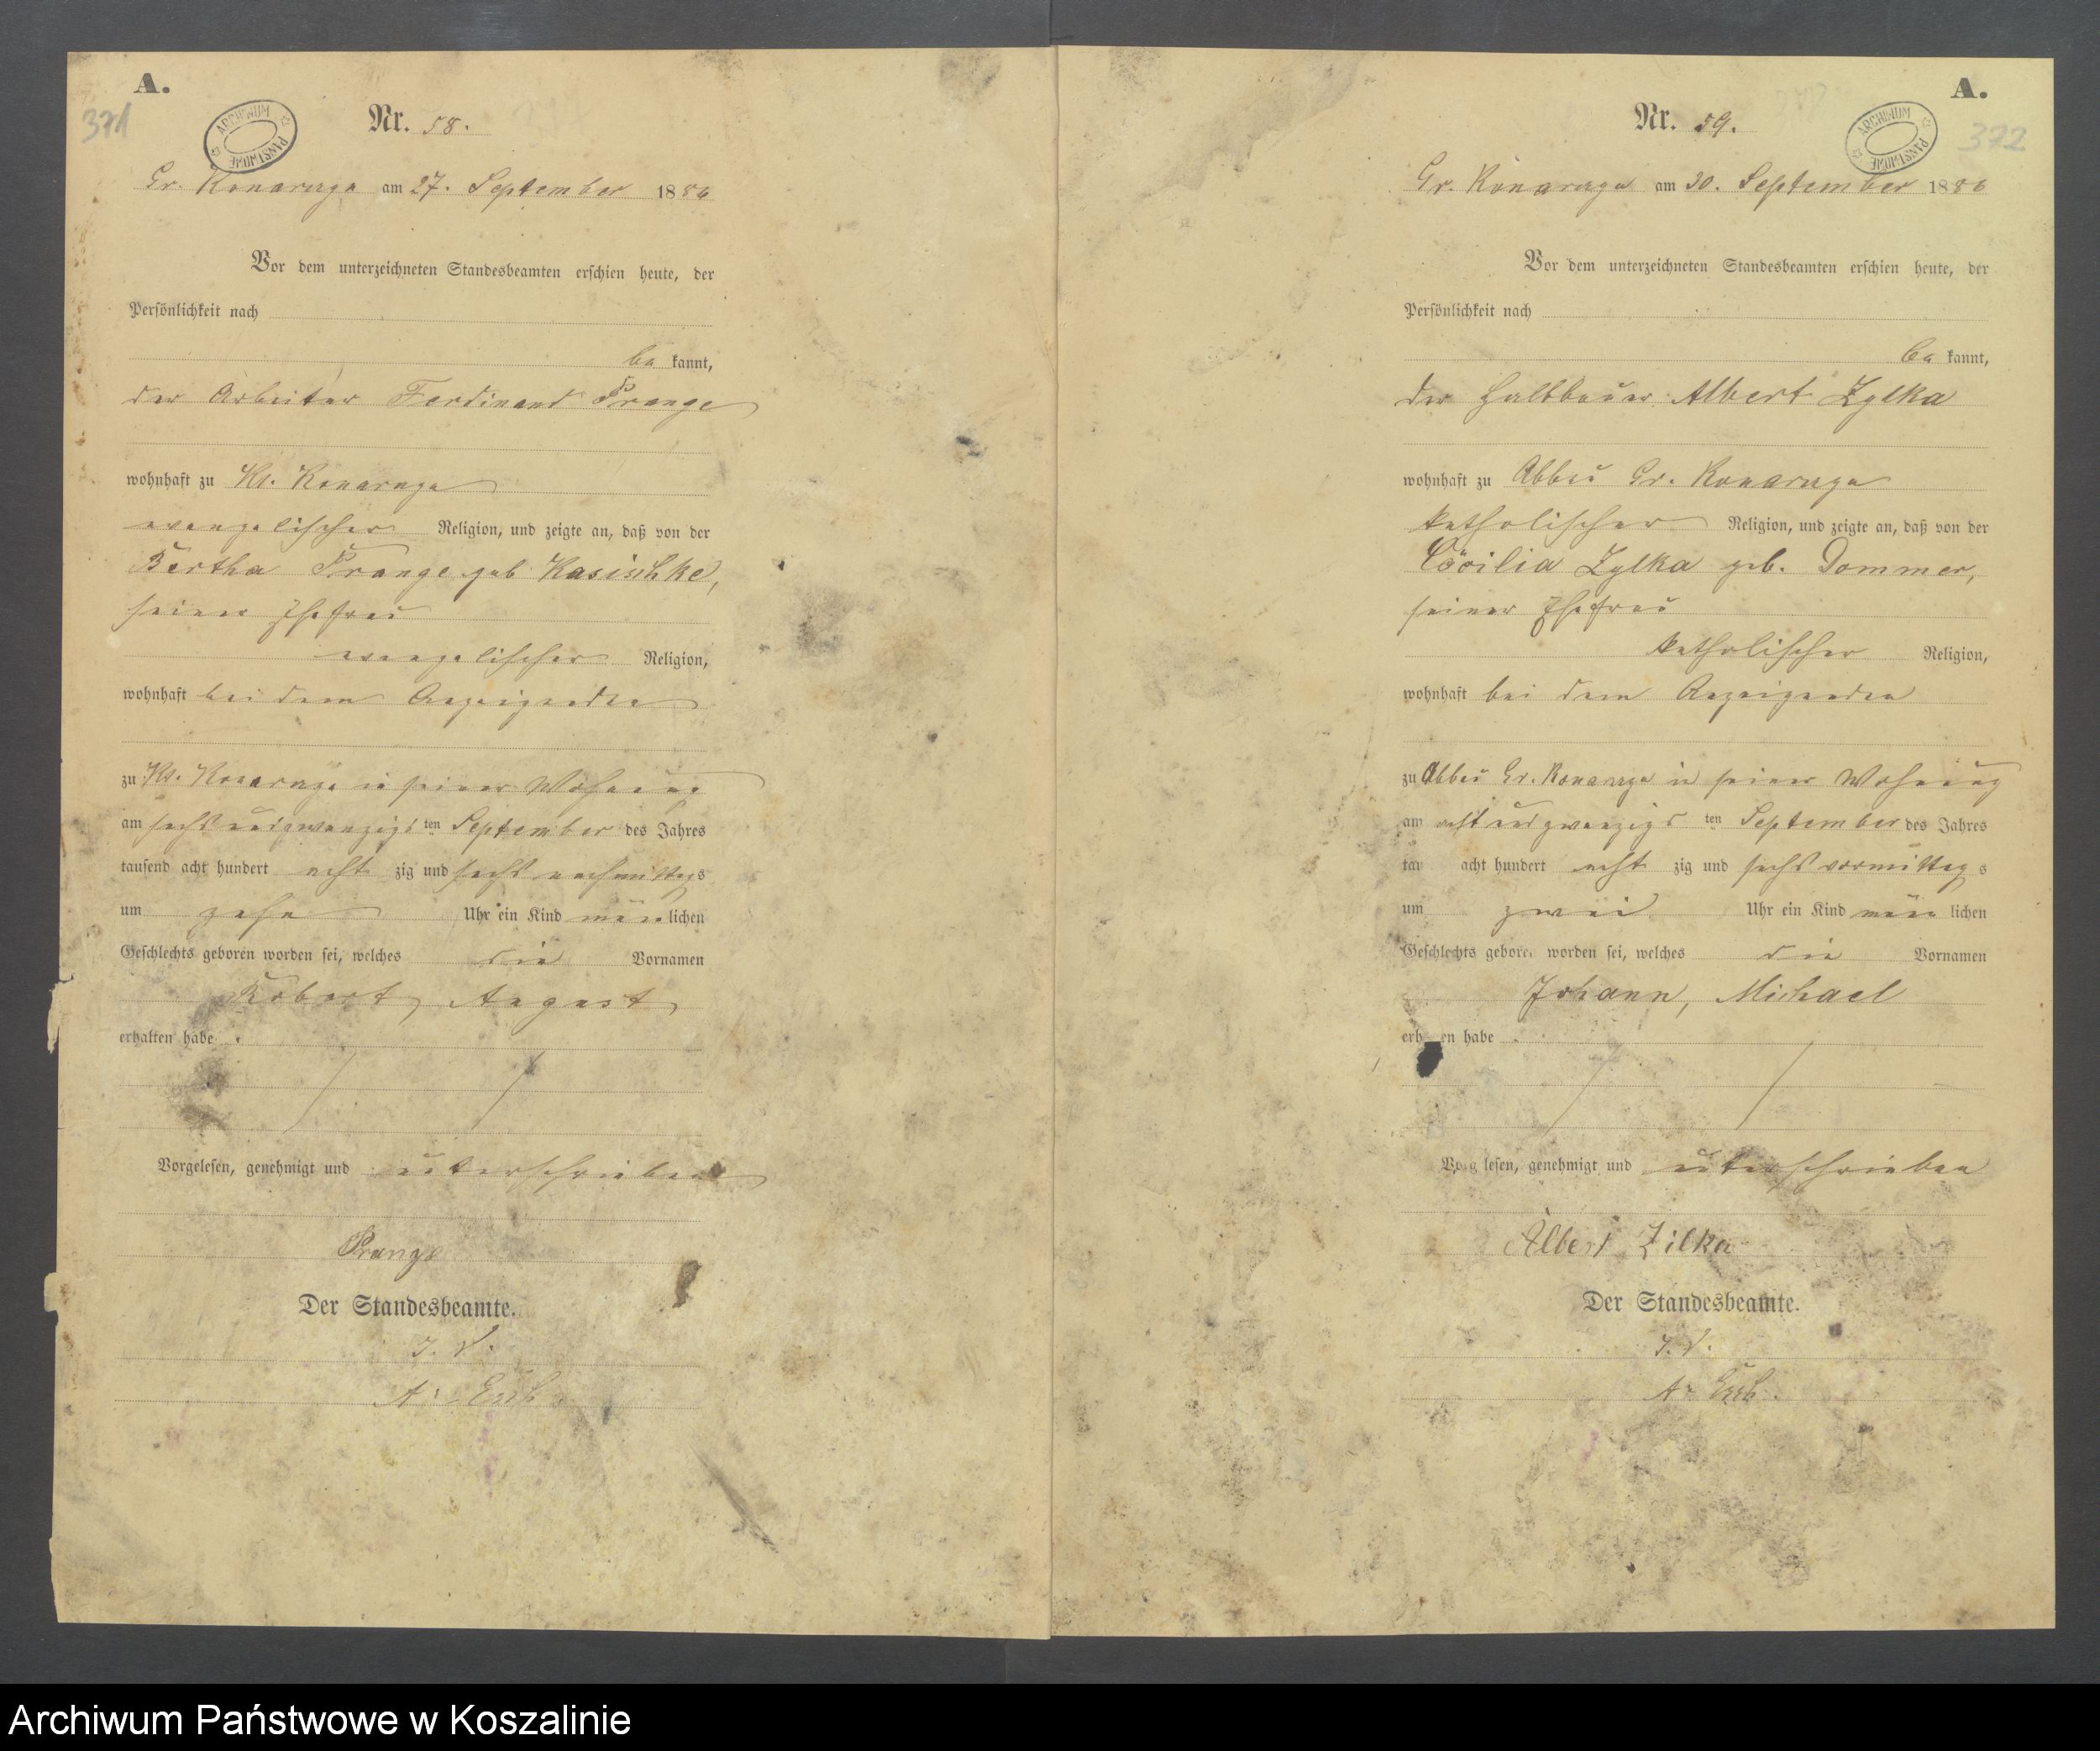 A.
371
ARCHIWUM PAŃSTWOWE
Nr. 58.
Gr. Konarczyn am 27. September 1886
Vor dem unterzeichneten Standesbeamten erschien heute, der
Persönlichkeit nach
be kannt,
der Arbeiter Ferdinand Prange
wohnhaft zu Kl. Konarczyn
evangelischer Religion, und zeigte an, daß von der
Bertha Prange geb Kasischke,
seiner Ehefrau
evangelischer Religion,
wohnhaft bei dem Anzeigenden
zu Kl. Konarczyn in seiner Wohnung
am sechsundzwanzigs ten September des Jahres
tausend acht hundert acht zig und sechs nachmittags
um zehn Uhr ein Kind männlichen
Geschlechts geboren worden sei, welches die Vornamen
Robert, August,
erhalten habe.
Vorgelesen, genehmigt und unterschrieben
Prange
Der Standesbeamte.
I. V.
A.
A.
372
ARCHIWUM PAŃSTWOWE
Nr. 59.
Gr. Konarczyn am 30. September 1886
Vor dem unterzeichneten Standesbeamten erschien heute, der
Persönlichkeit nach
be kannt,
der Halbbauer Albert Zylka
wohnhaft zu Abbau Gr. Konarczyn
katholischer Religion, und zeigte an, daß von der
Cäcilia Zylka geb. Dommer,
seiner Ehefrau
katholischer Religion,
wohnhaft bei dem Anzeigenden
zu Abbau Gr. Konarczyn in seiner Wohnung
am achtundzwanzigs ten September des Jahres
tau acht hundert acht zig und sechs vormittags
um zwei Uhr ein Kind männlichen
Geschlechts geboren worden sei, welches die Vornamen
Johann, Michael
erh en habe.
Vorg lesen, genehmigt und unterschrieben
Albert Zilka
Der Standesbeamte.
I. V.
A.
Archiwum Państwowe w Koszalinie